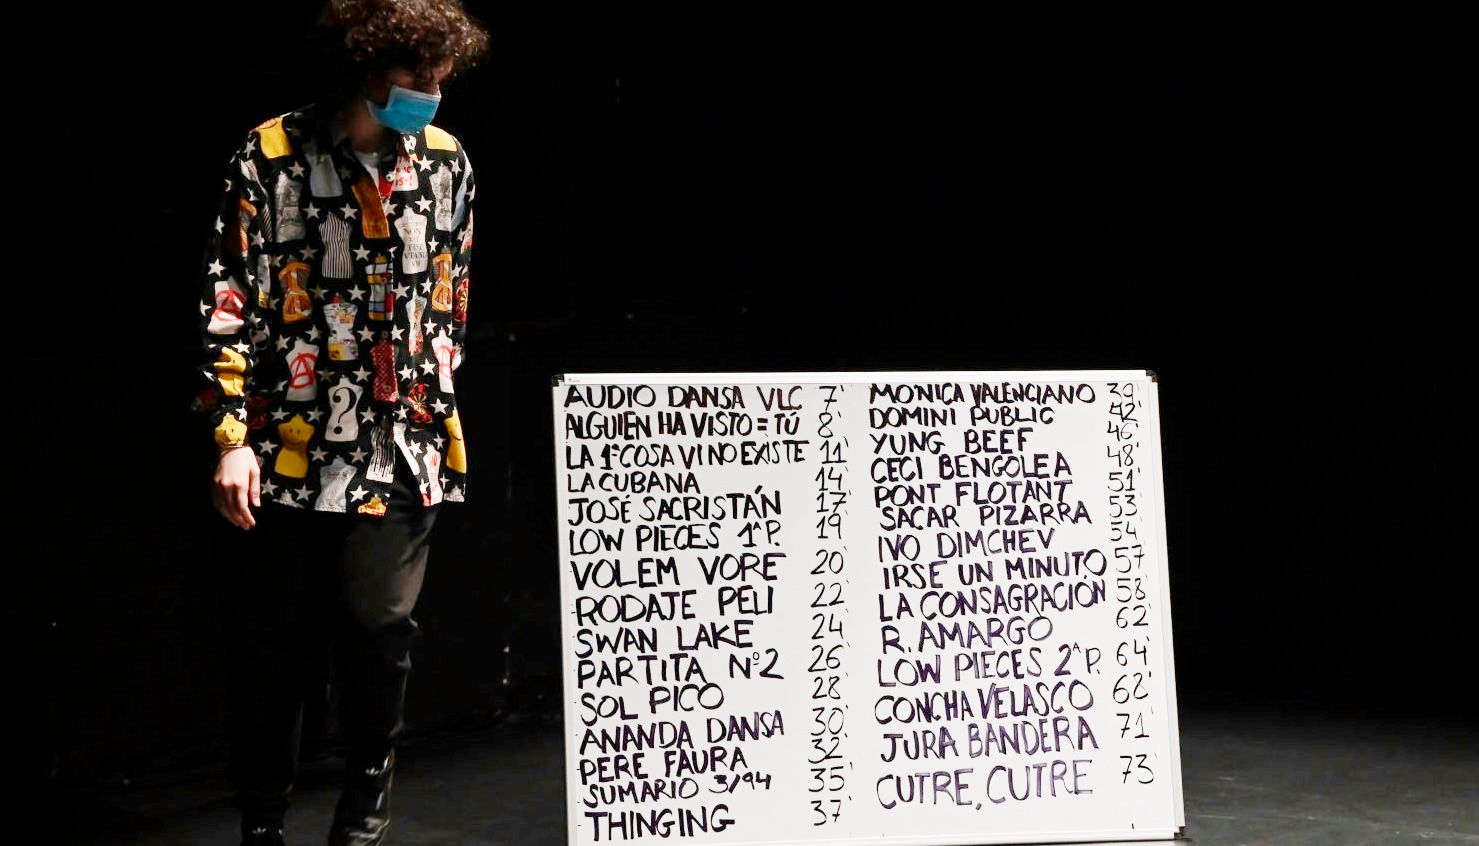 AUDIO DANSA VLC 7'
ALGUIEN HA VISTO = TÚ 8'
LA 1ª COSA VI NO EXISTE 11'
LA CUBANA 14'
JOSÉ SACRISTÁN 17'
LOW PIECES 1ª P. 19'
VOLEM VORE 20'
RODAJE PELI 22'
SWAN LAKE 24'
PARTITA Nº2 26'
SOL PICO 28'
ANANDA DANSA 30'
PERE FAURA 32'
SUMARIO 3/94 35'
THINGING 37'
MONICA VALENCIANO 39'
DOMINI PUBLIC 42'
YUNG BEEF 46'
CECI BENGOLEA 48'
PONT FLOTANT 51'
SACAR PIZARRA 53'
IVO DIMCHEV 54'
IRSE UN MINUTO 57'
LA CONSAGRACIÓN 58'
R. AMARGO 62'
LOW PIECES 2ª P. 64'
CONCHA VELASCO 68'
JURA BANDERA 71'
CUTRE, CUTRE 73'